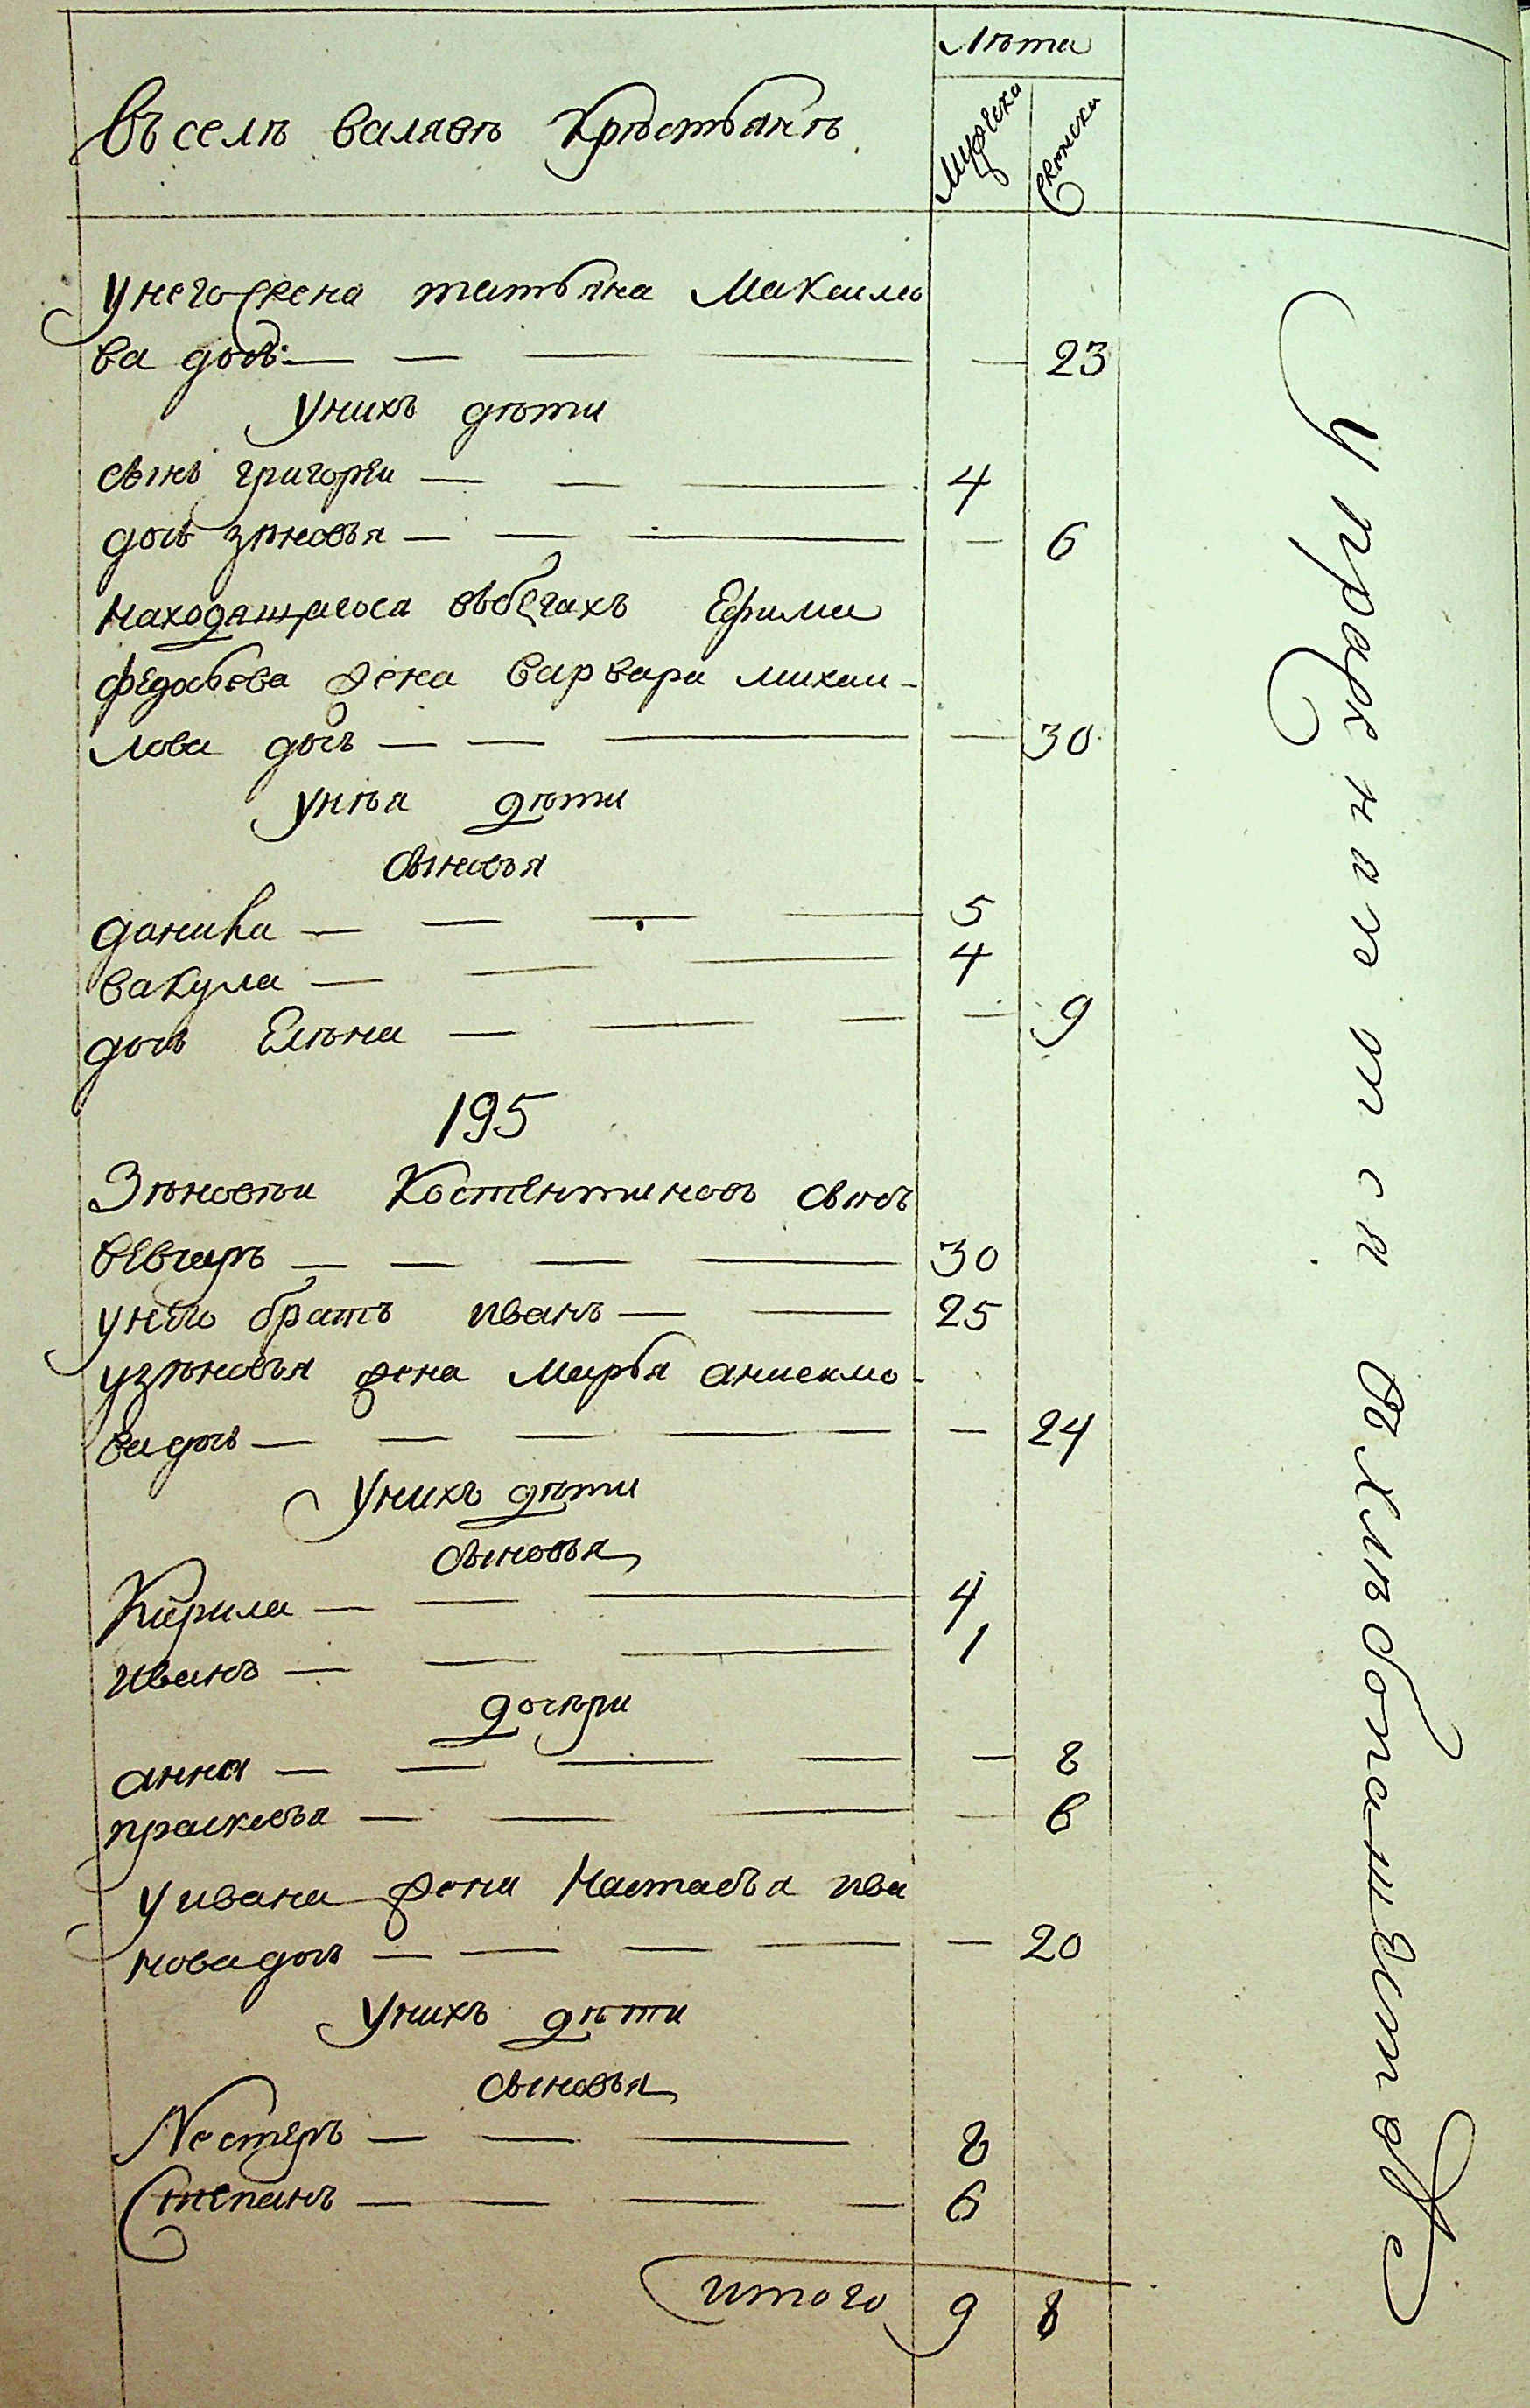 лѣта
въ селѣ валявѣ крѣстьянъ
мужска
женска
унего жена татьяна Максимо
ва дочь — — — — — 23
Унихъ дѣти
сынъ григорѣи — — — 4
дочь зѣновъя — — — — 6
находящагося вбегахъ Ефима
федосьева жена варвара михаи-
лова дочь — — — — 30
унѣя дѣти
сыновъя
данила — — — — 5
вакула — — — 4
дочь Елѣна — — — — 9
195
Зѣновѣи Костентиновъ сынъ
— — — — 30
унего братъ иванъ — — 25
узѣновъя жена Марья анисимо-
ва дочь — — — — — — 24
Унихъ дѣти
сыновъя
Кирила — — — 4
иванъ — — — 1
дочѣри
анна — — — — — 8
прасковъя — — — — 6
у ивана жена Настасъя ива
нова дочь — — — — — 20
Унихъ дѣти
сыновъя
Нестеръ — — — 8
Степанъ — — — — 6
итого 9 8
Упражняетса вхлѣбопашествѣ